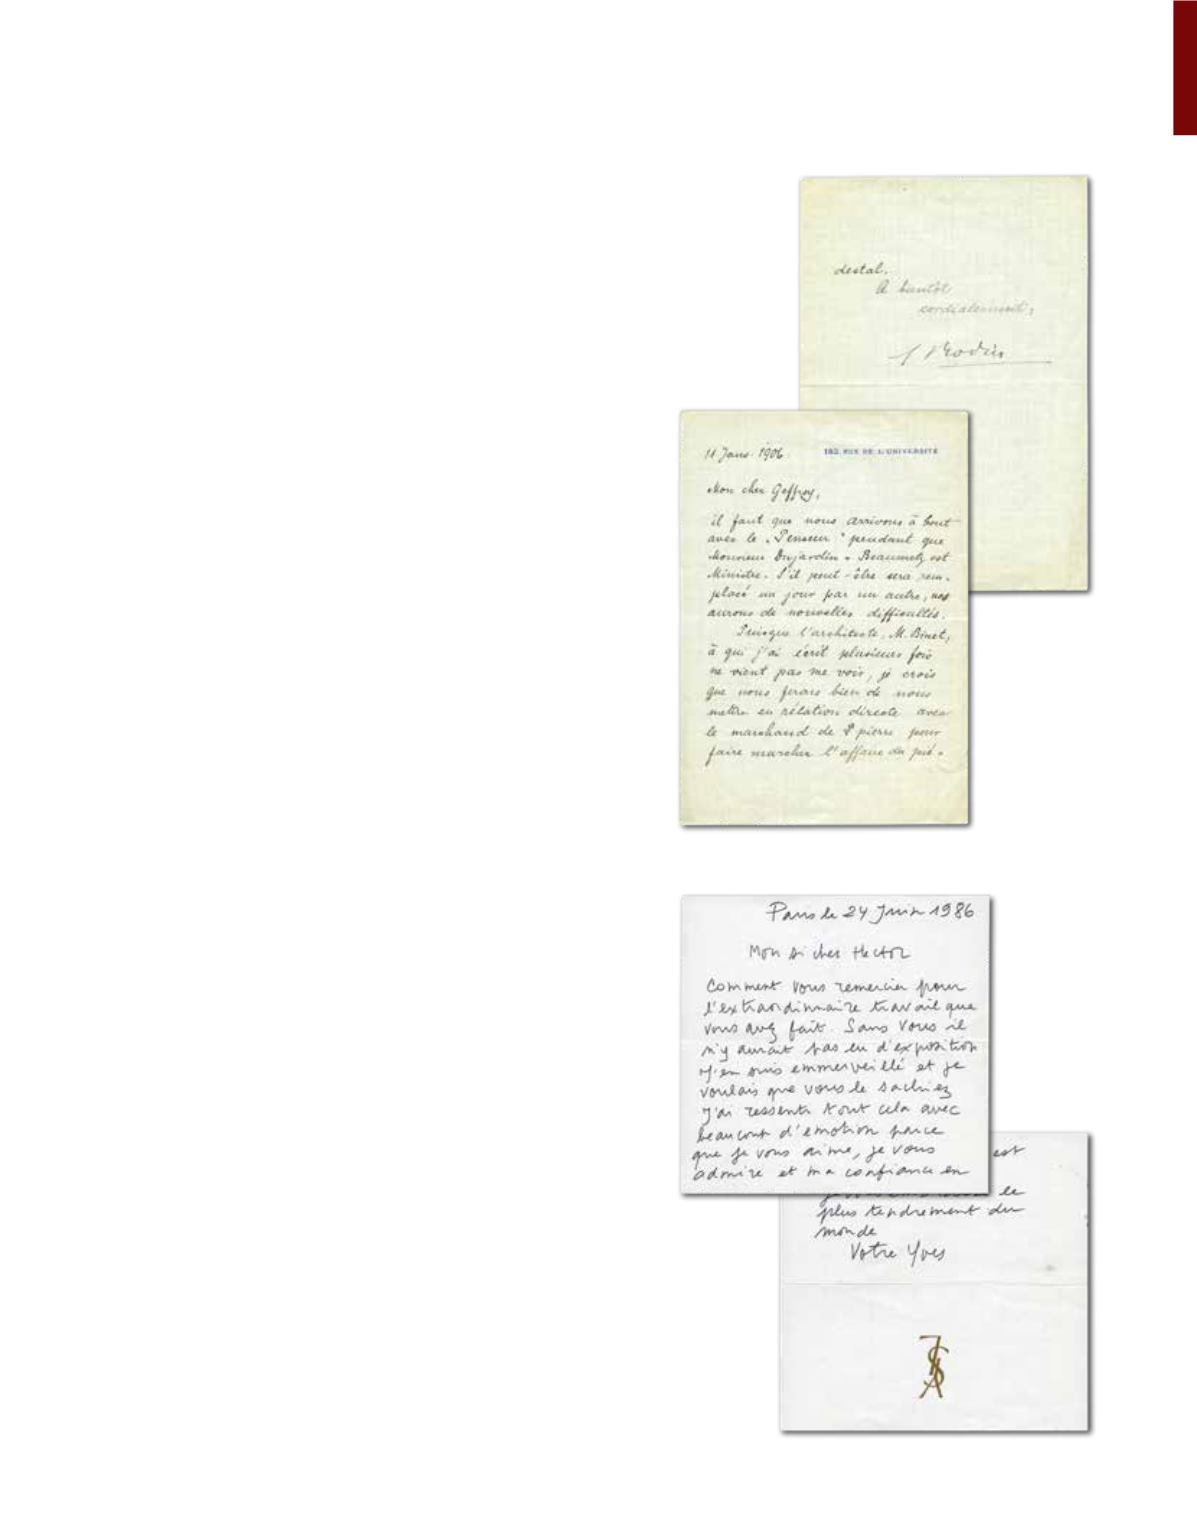 destal.
A bantôt
cordialement,
A Rodin
11 Janv. 1906.
182, RUE DE L'UNIVERSITÉ
Mon cher Geffroy,
il faut que nous arrivons à bout
avec le „Penseur" pendant que
Monsieur Dujardin-Beaumetz est
Ministre. S'il peut-être sera rem-
placé un jour par un autre, nos
aurons de nouvelles difficultés.
Puisque l'architecte, M. Binet,
à qui j'ai écrit plusieurs fois
ne vient pas me voir, je crois
que nous ferais bien de nous
mettre en rélation directe avec
le marchand de pierre pour
faire marcher l'affaire du pié-
Paris le 24 Juin 1986
Mon si cher Hector
Comment vous remercier pour
l'extraordinnaire travail que
vous avez fait. Sans vous il
n'y aurait pas eu d'exposition
J'en suis emmerveillé et je
voulais que vous le sachiez
J'ai ressenti tout cela avec
beaucoup d'emotion parce
que je vous aime, je vous
admire et ma confiance en
est
le
plus tendrement du
monde
Votre Yves
YSL